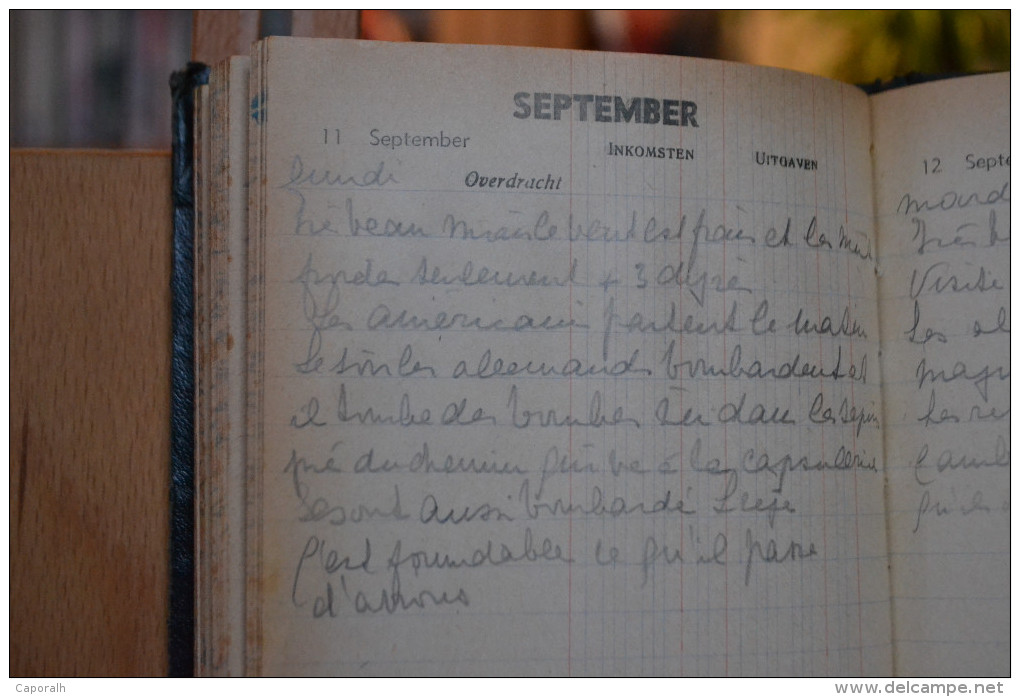 SEPTEMBER
11 September
INKOMSTEN UITGAVEN
lundi Overdracht
Très beau mais le vent est frais et les nuit
froides seulement + 3 degrés
Les américains partent le matin
Le soir les allemands bombardent et
il tombe des bombes ici dans les sapin
pré du chemin qui va à la capsulerie
Ils ont aussi bombardé Liège
C'est formidable ce qu'il passe
d'avions
12 Septe
mard
Très b
Visite
Les al
magn
Les
qu'ils
Caporalh
www.delcampe.net